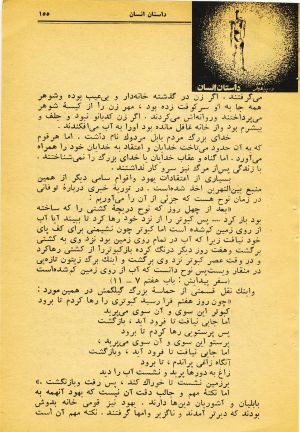 ۱۵۵
داستان انسان
داستان انسان
می‌گرفتند . اگر زن در گذشته خانه‌دار و بی‌عیب بوده و شوهر
همه جا به او سرکوفت زده بود ، مهر زن را از کیسهٔ شوهر
می‌پرداختند و روانه‌اش می‌کردند . اگر زن کدبانو نبود و جلف و
بیشرم بود و از خانه غافل مانده بود اورا به آب می‌افکندند .
خدای بزرگ مردم بابل مردوك نام داشت . اما هر قوم
که به آن حدود می‌تاخت خدایان و اعتقاد به خدایان خود را همراه
می‌آورد . اما گناه و عقاب خدایان با خدای بزرگ را نمی‌شناختند .
با زندگی پس از مرگ نیز سرو کار نداشتند .
بسیاری از اعتقادات یهود و اقوام سامی دیگر از همین
منبع بین‌النهرین اخذ شده‌است . در توریة خبری دربارهٔ توفانی
در زمان نوح هست که جزئی از آن را می‌آوریم :
«بعد از چهل روز که نوح دریچهٔ کشتی را که ساخته
بود باز کرد ... پس کبوتر را از نزد خود رها کرد تا ببیند آیا آب
از روی زمین کم‌شده است اما کبوتر چون نشیمنی برای کف پای
خود نیافت زیرا که آب در تمام روی زمین بود نزد وی به کشتی
برگشت و هفت روز دیگر درنگ کرده باز کبوتر را از کشتی رها کرد
و در وقت عصر کبوتر نزد وی برگشت و اینك برگ زیتون تازه‌یی
در منقار و پست پس نوح دانست که آب از روی زمین کم‌شده است
(سفر پیدایش : باب هفتم ۷ – ۱۱)
و اینك نقل قسمتی از حماسهٔ بزرگ گیلگمش در همین مورد :
«چون روز هفتم فرا رسید کبوتری را رها کردم تا برود
کبوتر این سوی و آن سوی می‌پرید
اما جایی نیافت تا فرود آید ، بازگشت
پس پرستویی رها کردم تا برود
پرستو این سوی و آن سوی می‌پرید ،
اما جایی نیافت تا فرود آید ، و بازگشت
آنگاه زاغی پراندم ، تا برود
زاغ به دورها پرید و نشست آب را دید
بر زمین نشست تا خوراك کند ، پس رفت و بازنگشت .»
اما نکتهٔ مهم و جالب دقت آن نیست که یهود آنهمه به
بابلیان و آشوریان دین‌ها دارند . یهود نیز قومی خانه بدوش
بودند که دیرتر آمدند و ناگزیر وامها گرفتند . نکتهٔ مهم آن است